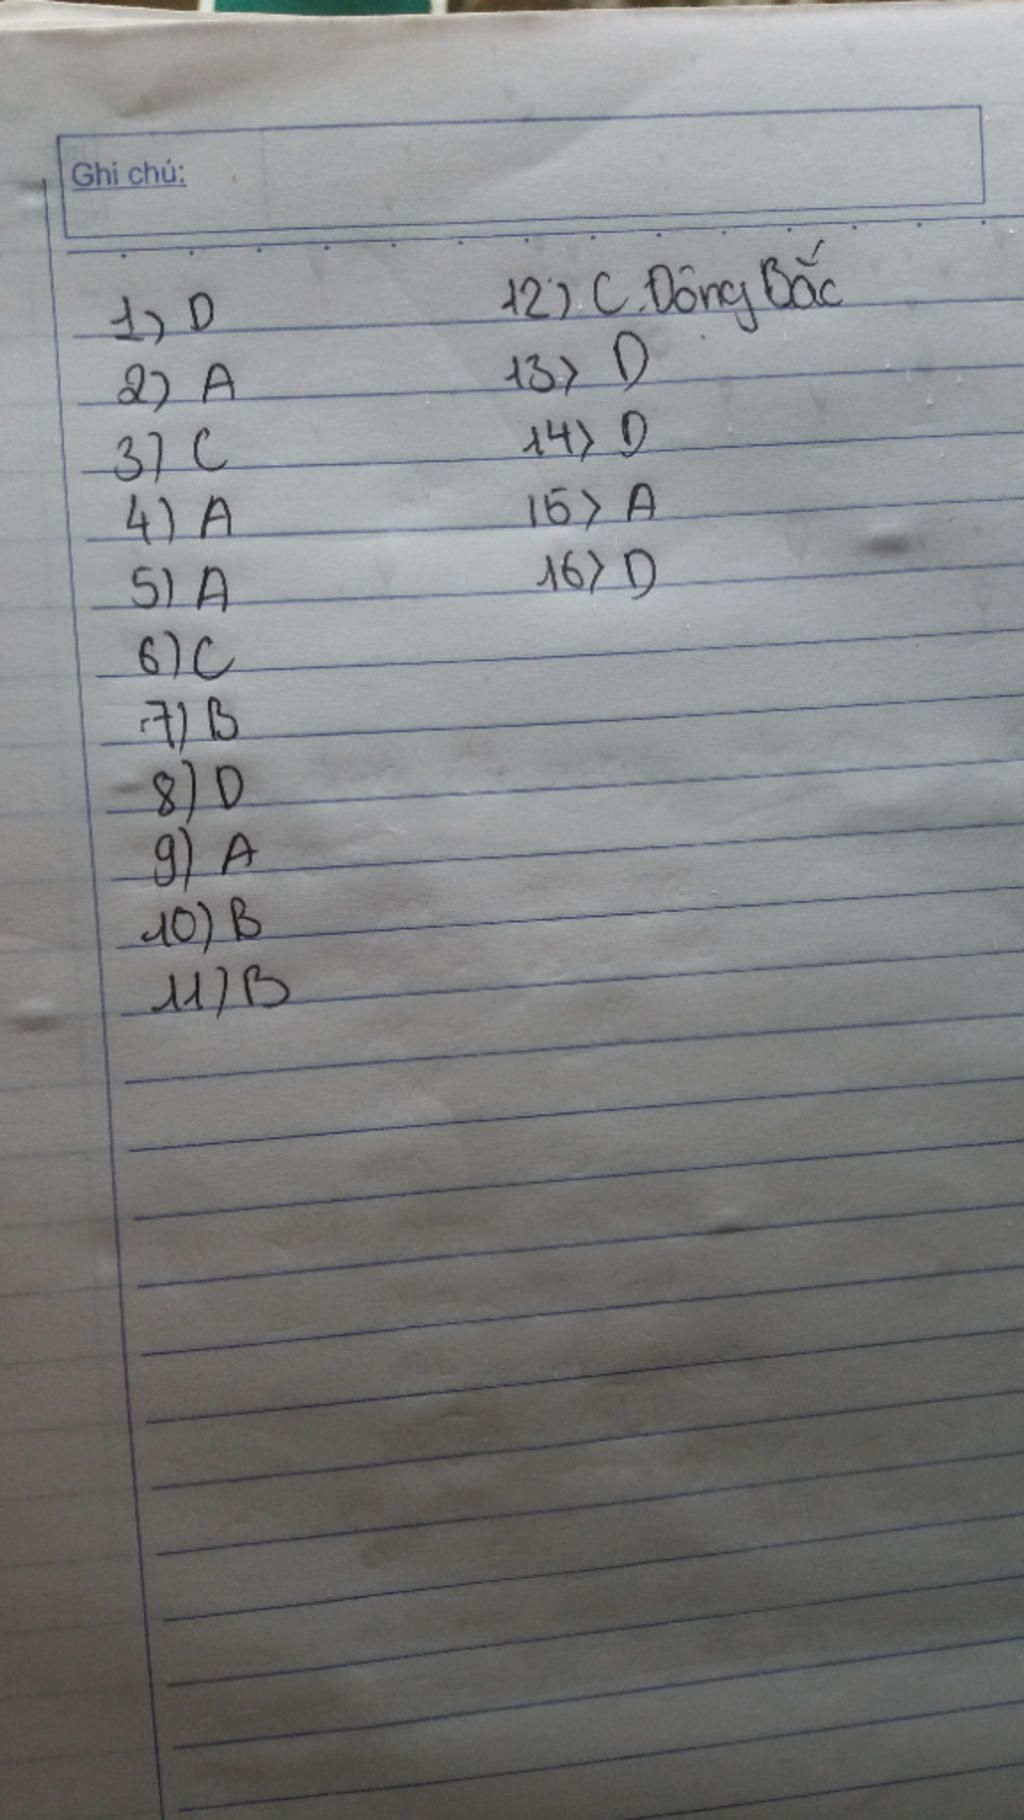 Ghi chú:
1) D
2) A
3) C
4) A
5) A
6) C
7) B
8) D
9) A
10) B
11) B
12) C. Đông Bắc
13) D
14) D
15) A
16) D